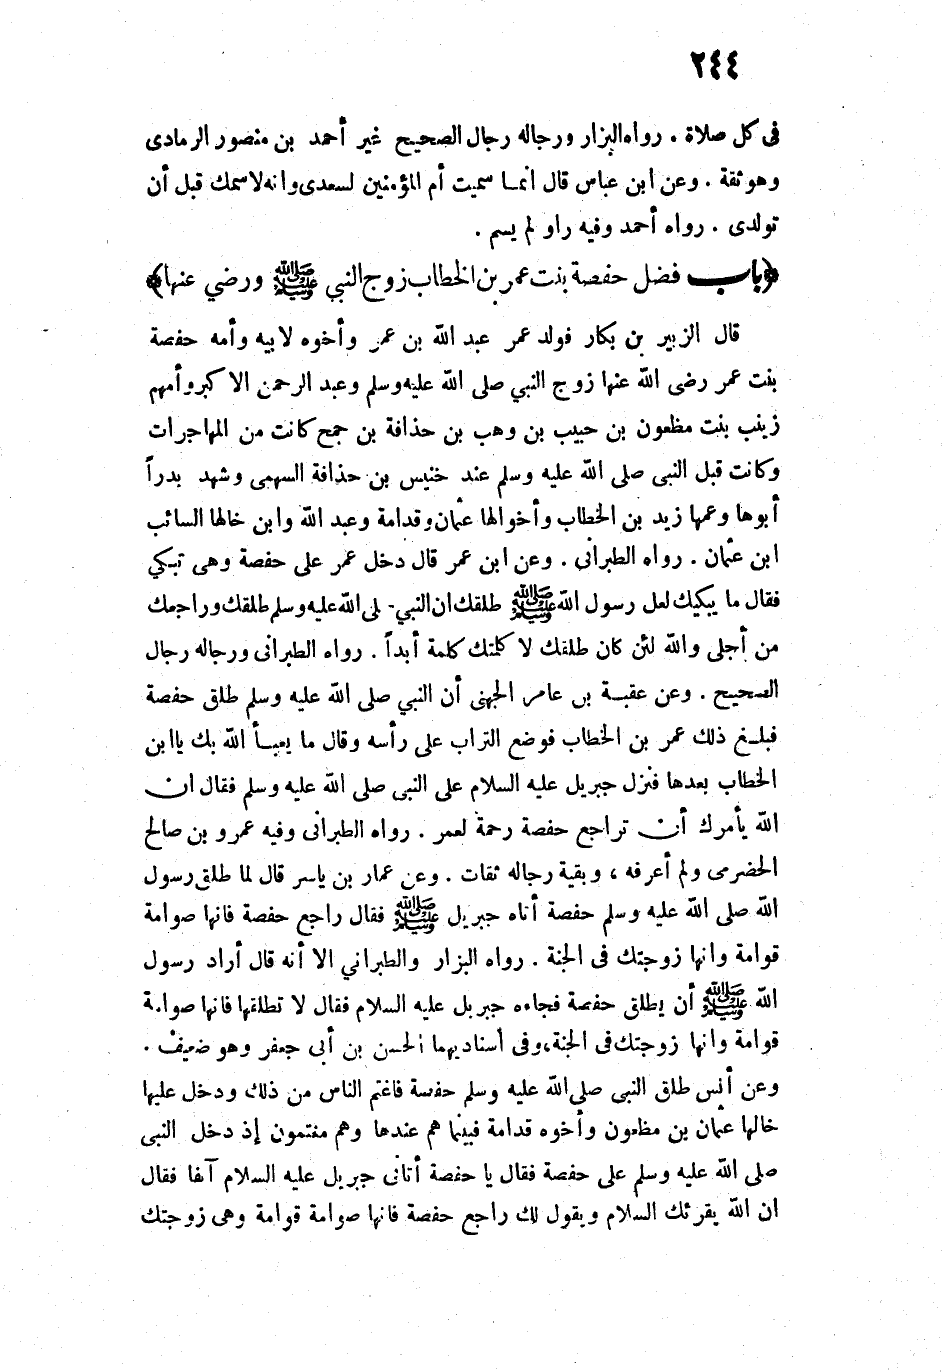 ٢٤٤
فى كل صلاة . رواه البزار ورجاله رجال الصحيح غير أحمد بن منصور الرمادى
وهو ثقة . وعن ابن عباس قال انما سميت أم المؤمنين لسعدى وانه لاسمك قبل أن
تولدى . رواه أحمد وفيه راو لم يسم .
﴿باب فضل حفصة بنت عمر بن الخطاب زوج النبي ﷺ ورضي عنها﴾
قال الزبير بن بكار فولد عمر عبد الله بن عمر وأخوه لابيه وأمه حفصة
بنت عمر رضى الله عنها زوج النبي صلى الله عليه وسلم وعبد الرحمن الاكبر وأمهم
زينب بنت مظعون بن حبيب بن وهب بن حذافة بن جمح كانت من المهاجرات
وكانت قبل النبى صلى الله عليه وسلم عند خنيس بن حذافة السهمى وشهد بدراً
أبوها وعمها زيد بن الخطاب وأخوالها عثمان وقدامة وعبد الله وابن خالها السائب
ابن عثمان . رواه الطبرانى . وعن ابن عمر قال دخل عمر على حفصة وهى تبكي
فقال ما يبكيك لعل رسول الله ﷺ طلقك ان النبي صلى الله عليه وسلم طلقك وراجعك
من أجلى والله لئن كان طلقك لا كلمتك كلمة أبداً . رواه الطبرانى ورجاله رجال
الصحيح . وعن عقبة بن عامر الجهنى أن النبي صلى الله عليه وسلم طلق حفصة
فبلغ ذلك عمر بن الخطاب فوضع التراب على رأسه وقال ما يعبأ الله بك ياابن
الخطاب بعدها فنزل جبريل عليه السلام على النبى صلى الله عليه وسلم فقال ان
الله يأمرك أن تراجع حفصة رحمة لعمر . رواه الطبرانى وفيه عمرو بن صالح
الحضرمى ولم أعرفه ، وبقية رجاله ثقات . وعن عمار بن ياسر قال لما طلق رسول
الله صلى الله عليه وسلم حفصة أتاه جبريل ﷺ فقال راجع حفصة فانها صوامة
قوامة وانها زوجتك فى الجنة . رواه البزار والطبراني الا أنه قال أراد رسول
الله ﷺ أن يطلق حفصة فجاءه جبريل عليه السلام فقال لا تطلقها فانها صوامة
قوامة وانها زوجتك فى الجنة، وفى أسناديهما الحسن بن أبى جعفر وهو ضعيف .
وعن أنس طلق النبى صلى الله عليه وسلم حفصة فاغتم الناس من ذلك ودخل عليها
خالها عثمان بن مظعون وأخوه قدامة فبينما هم عندها وهم مغتمون إذ دخل النبى
صلى الله عليه وسلم على حفصة فقال يا حفصة أتانى جبريل عليه السلام آنفا فقال
ان الله يقرئك السلام ويقول لك راجع حفصة فانها صوامة قوامة وهى زوجتك